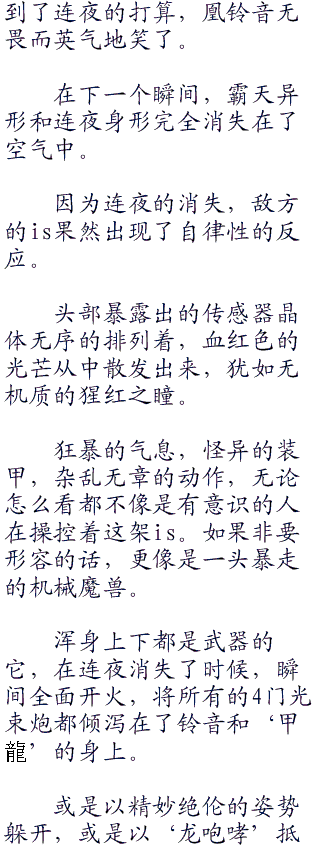 到了连夜的打算，凰铃音无
畏而英气地笑了。
在下一个瞬间，霸天异
形和连夜身形完全消失在了
空气中。
因为连夜的消失，敌方
的is果然出现了自律性的反
应。
头部暴露出的传感器晶
体无序的排列着，血红色的
光芒从中散发出来，犹如无
机质的猩红之瞳。
狂暴的气息，怪异的装
甲，杂乱无章的动作，无论
怎么看都不像是有意识的人
在操控着这架is。如果非要
形容的话，更像是一头暴走
的机械魔兽。
浑身上下都是武器的
它，在连夜消失了时候，瞬
间全面开火，将所有的4门光
束炮都倾泻在了铃音和‘甲
龍’的身上。
或是以精妙绝伦的姿势
躲开，或是以‘龙咆哮’抵